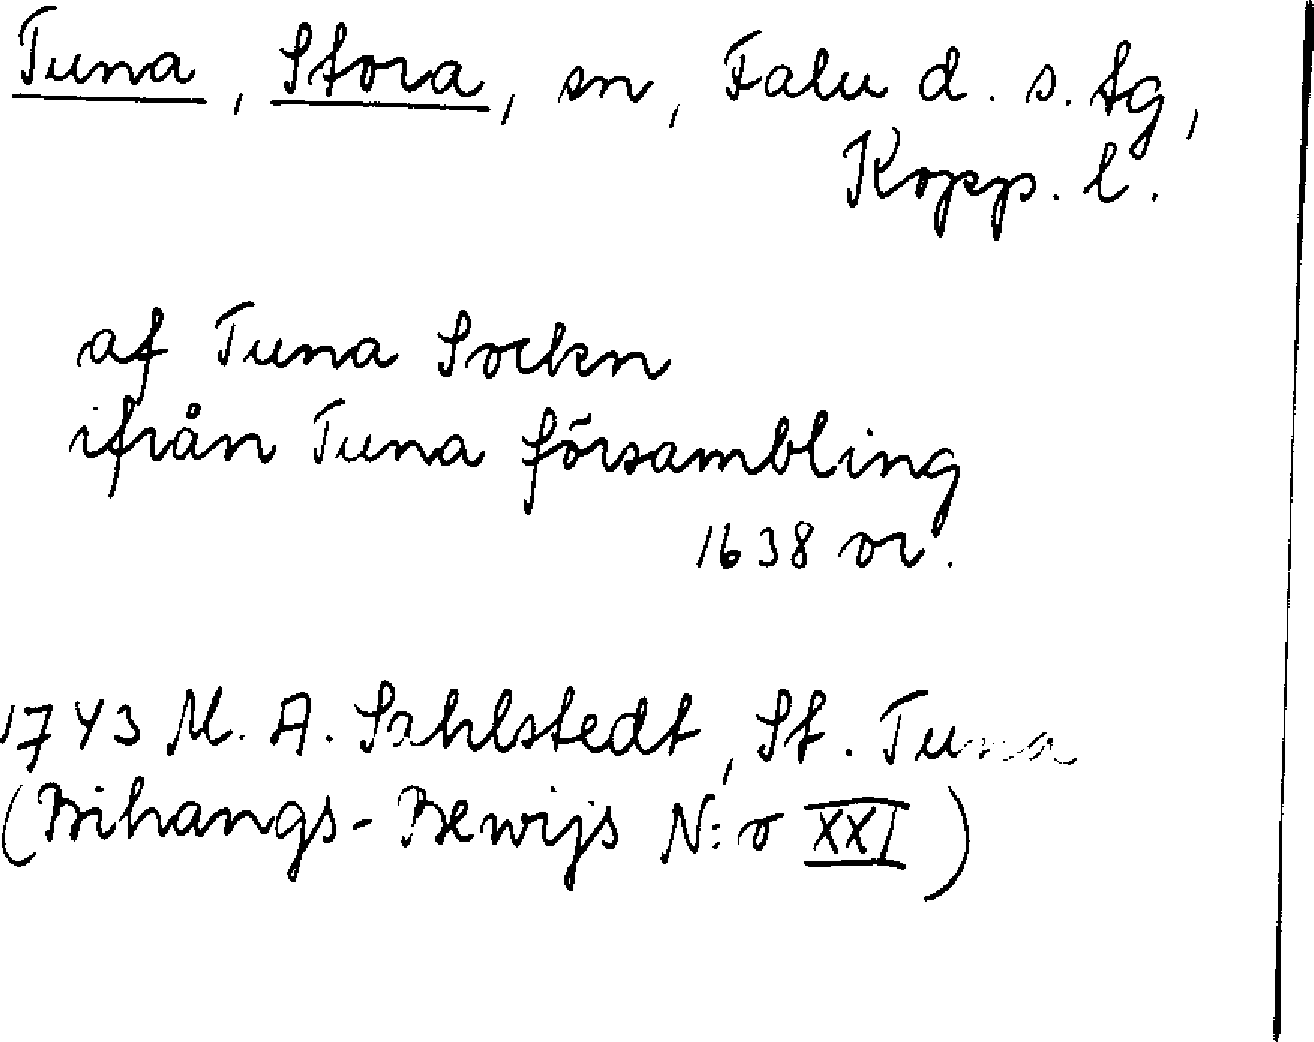 Tuna, Stora, sn, Falu d. s. tg,
Kopp. l.
af Tuna Sockn
ifrån Tuna försambling
1638 or.
1743 M. A. Sahlstedt, St. Tuna
(Bihangs-Bewijs N:o XXI)